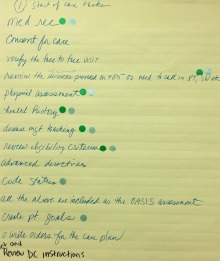 ① start of care tasks
med rec
Consent for care
verify the face to face visit
Review the services provided
physical assessment
health history
disease mgt teaching
Review eligibility criteria
advanced directives
Code status
all the above are included in the OASIS assessment
Create pt. goals
write orders for the care plan
pt and
Review DC instructions